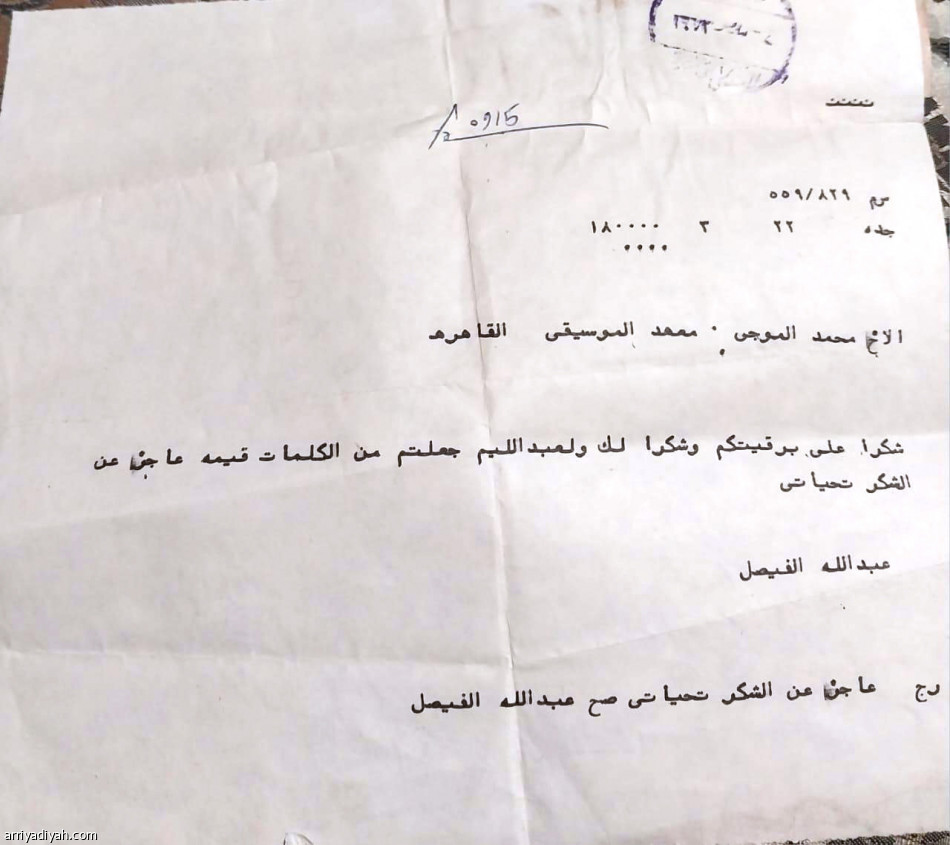 0915
سرم ٥٥٩/٨٢٩
جده ٢٢ ٣ ١٨٠٠٠٠
الاخ محمد الموجى . معهد الموسيقى القاهره
شكرا على برقيتكم وشكرا لك ولعبدالليم جعلتم من الكلمات قيمه عاجز عن
الشكر تحياتى
عبدالله الفيصل
رج عاجز عن الشكر تحياتى صح عبدالله الفيصل
arriyadiyah.com